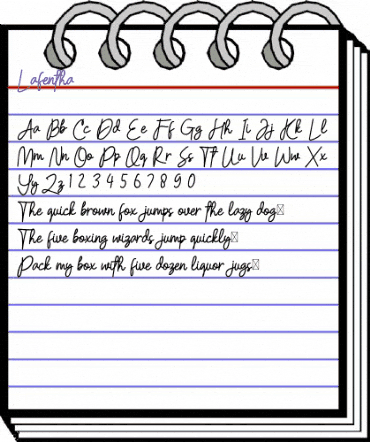 Lafentha
Aa Bb Cc Dd Ee Ff Gg Hh Ii Jj Kk Ll
Mm Nn Oo Pp Qq Rr Ss Tt Uu Vv Ww Xx
Yy Zz 1 2 3 4 5 6 7 8 9 0
The quick brown fox jumps over the lazy dog▯
The five boxing wizards jump quickly▯
Pack my box with five dozen liquor jugs▯